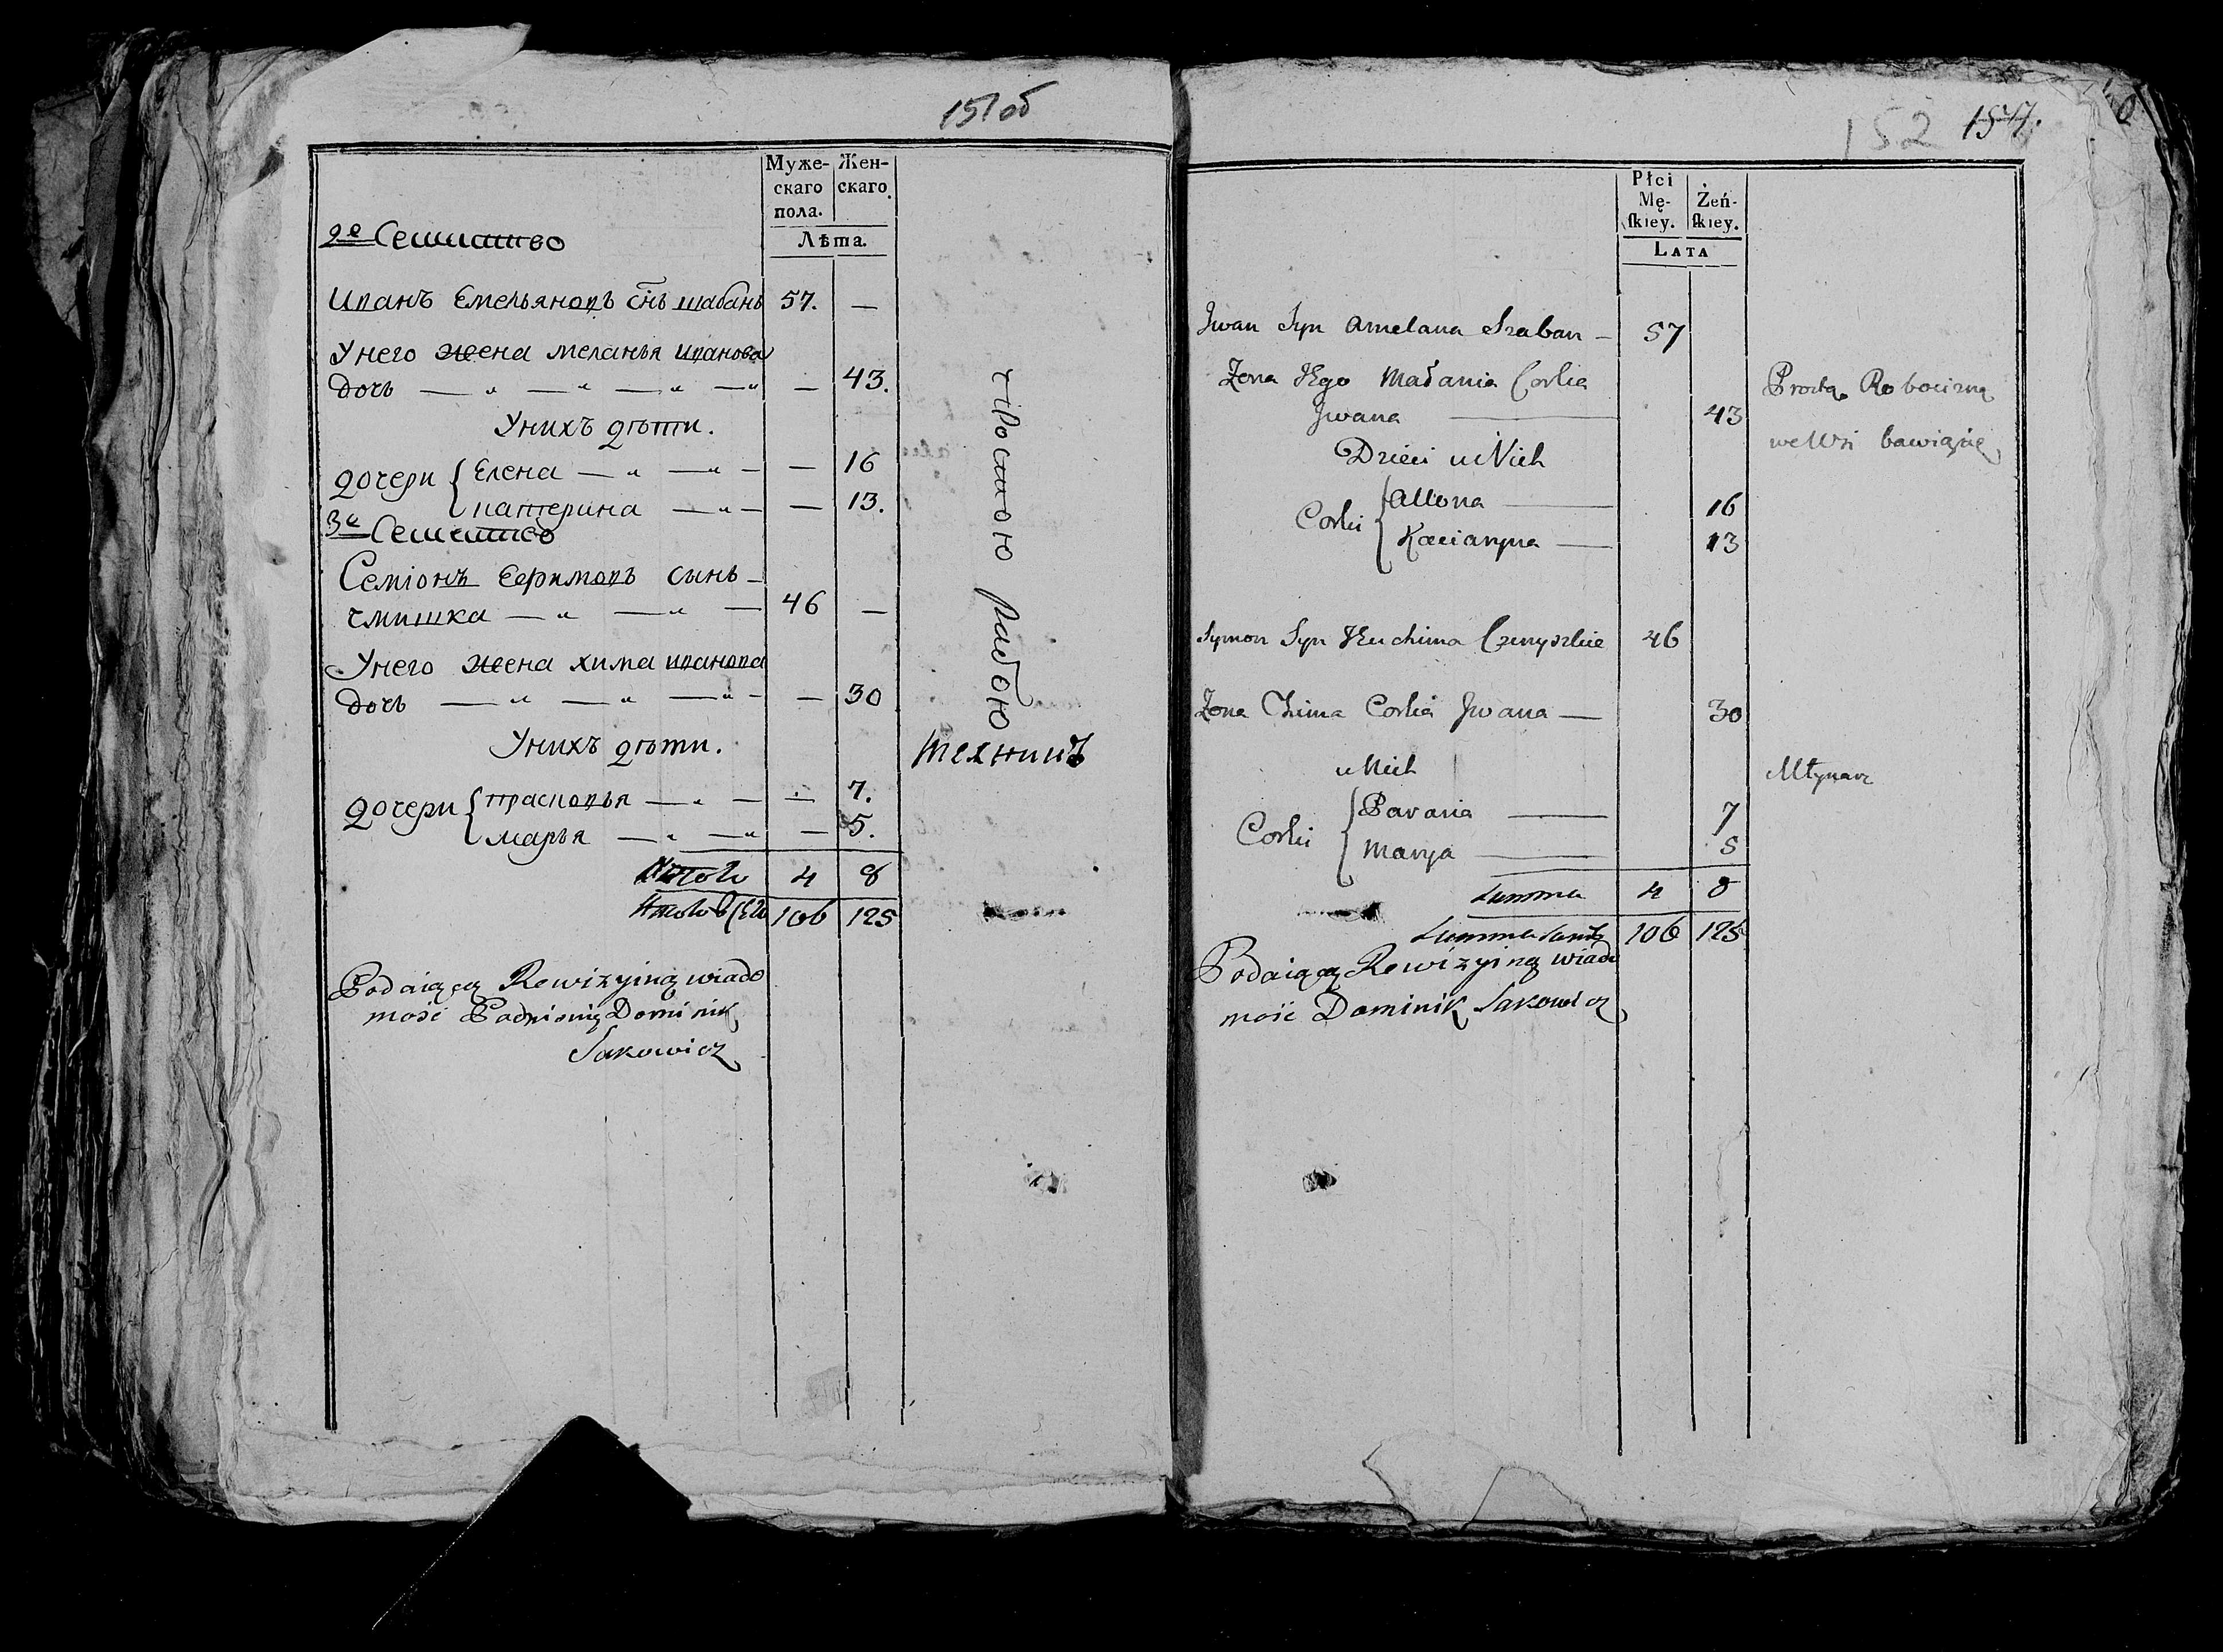 151 об
Муже-
скаго
пола.
Жен-
скаго
Лѣта.
2е Семейство
Иванъ Емельяновъ снъ шабанъ 57. —
У него жена меланья иванова
дочь — " — " — " — " — 43.
У нихъ дѣти.
дочери { Елена — " — " — — 16
катерина — " — — 13.
3е Семейство
Семіонъ Ефимовъ сынъ —
чмишка — " — " — 46 —
У него жена хима иванова
дочь — " — " — " — — 30
У нихъ дѣти.
дочери { прасковья — " — — 7.
марья — " — " — 5.
Итого 4 8
Итого 106 125
простою работою
мельникъ
Podaiącą Rewizyiną wiado
mość Dominik
Sakowicz
152 157.
Płci
Mę-
ſkiey.
Żeń-
ſkiey.
LATA
Jwan Syn Amelana Szaban — 57
Zona Jego Małania Corka
Jwana — 43
Dzieci u Nich
Corki { Allona — 16
Kaciaryna — 13
Symon Syn Jeuchima Czmyszka 46
Zona Chima Corka Jwana — 30
u Nich
Corki { Parasia — 7
Marya — 5
Summa 4 8
Summa 106 125
Prostą Robocizną
we Wsi bawiąsię
Młynarz
Podaiącą Rewizyiną wiado
mość Dominik Sakowicz